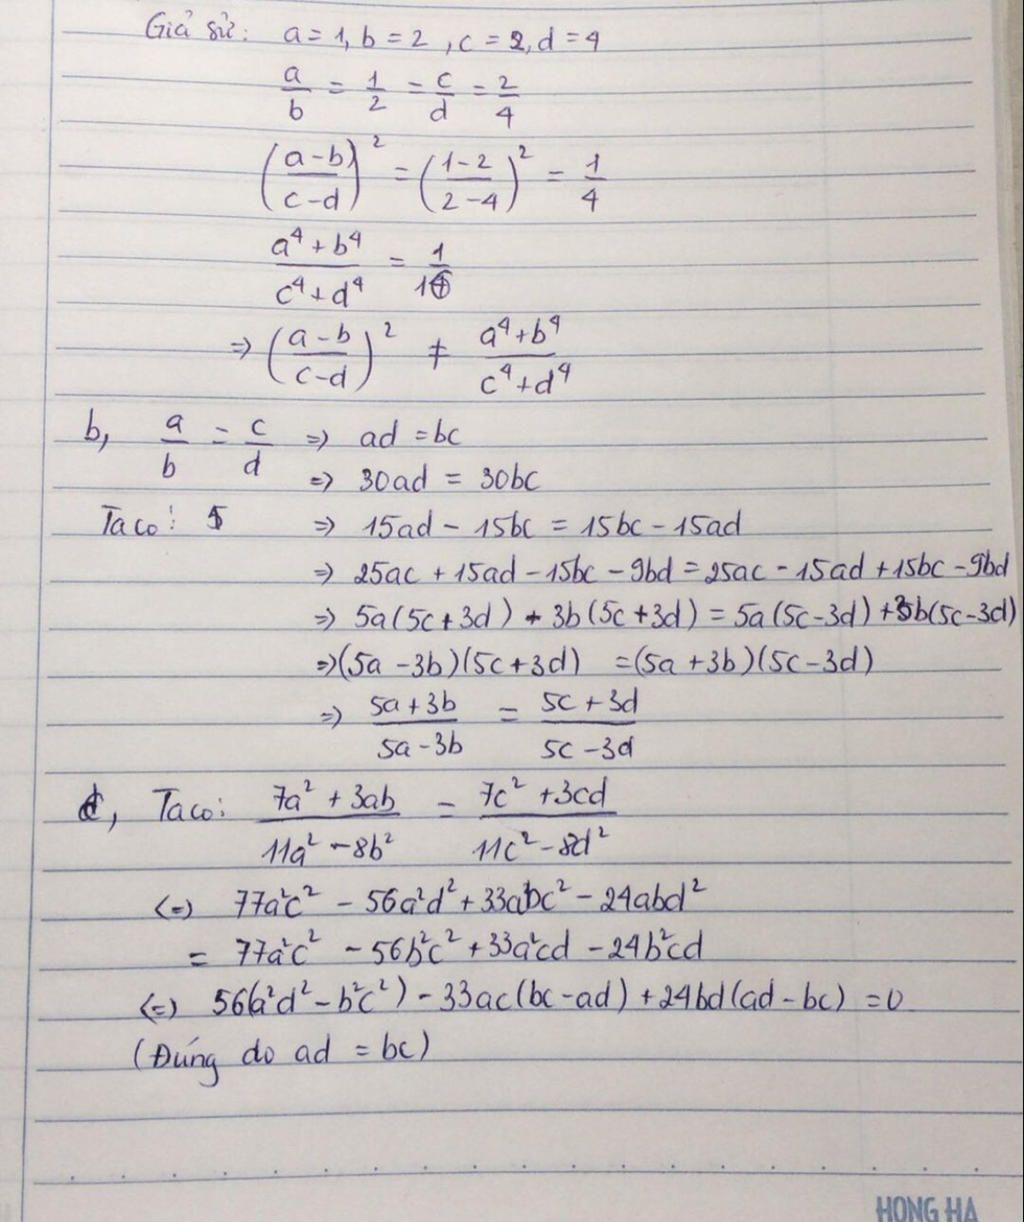 Giả sử: a = 1, b = 2, c = 2, d = 4
a/b = 1/2 = c/d = 2/4
((a-b)/(c-d))² = ((1-2)/(2-4))² = 1/4
(a⁴+b⁴)/(c⁴+d⁴) = 1/16
=> ((a-b)/(c-d))² ≠ (a⁴+b⁴)/(c⁴+d⁴)
b, a/b = c/d => ad = bc
=> 30ad = 30bc
Ta có: 5 => 15ad - 15bc = 15bc - 15ad
=> 25ac + 15ad - 15bc - 9bd = 25ac - 15ad + 15bc - 9bd
=> 5a(5c+3d) - 3b(5c+3d) = 5a(5c-3d) + 3b(5c-3d)
=> (5a-3b)(5c+3d) = (5a+3b)(5c-3d)
=> (5a+3b)/(5a-3b) = (5c+3d)/(5c-3d)
c, Ta có: (7a²+3ab)/(11a²-8b²) = (7c²+3cd)/(11c²-8d²)
(=) 77a²c² - 56a²d² + 33abc² - 24abd²
= 77a²c² - 56b²c² + 33a²cd - 24b²cd
(=) 56(a²d² - b²c²) - 33ac(bc-ad) + 24bd(ad-bc) = 0
(Đúng do ad = bc)
HONG HA